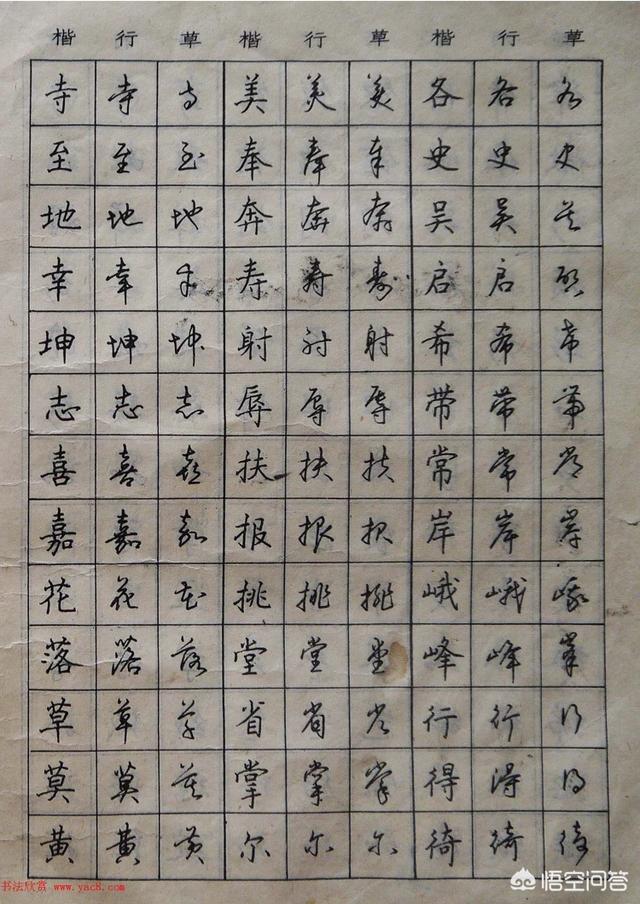 楷 行 草 楷 行 草 楷 行 草
寺 寺 寺 美 美 美 各 各 各
至 至 至 奉 奉 奉 史 史 史
地 地 地 奔 奔 奔 吴 吴 吴
幸 幸 幸 寿 寿 寿 启 启 启
坤 坤 坤 射 射 射 希 希 希
志 志 志 辱 辱 辱 带 带 带
喜 喜 喜 扶 扶 扶 常 常 常
嘉 嘉 嘉 报 报 报 岸 岸 岸
花 花 花 挑 挑 挑 峨 峨 峨
落 落 落 堂 堂 堂 峰 峰 峰
草 草 草 省 省 省 行 行 行
莫 莫 莫 掌 掌 掌 得 得 得
黄 黄 黄 尔 尔 尔 徛 徛 徛
书法欣赏 www.yac8.com
悟空问答